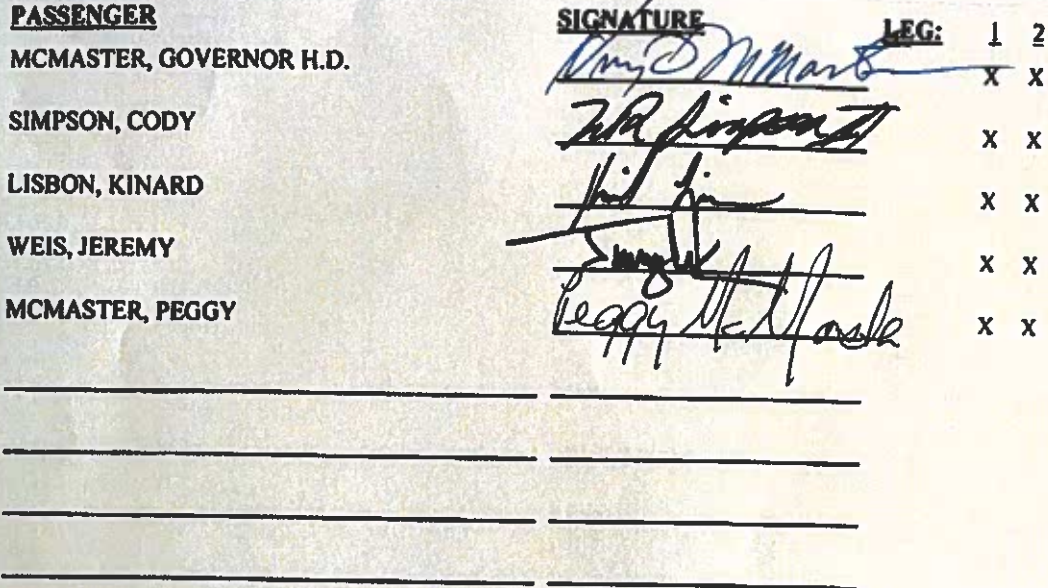 PASSENGER SIGNATURE LEG: 1 2
MCMASTER, GOVERNOR H.D. X X
SIMPSON, CODY Simpson X X
LISBON, KINARD X X
WEIS, JEREMY X X
MCMASTER, PEGGY Peggy McMaster X X